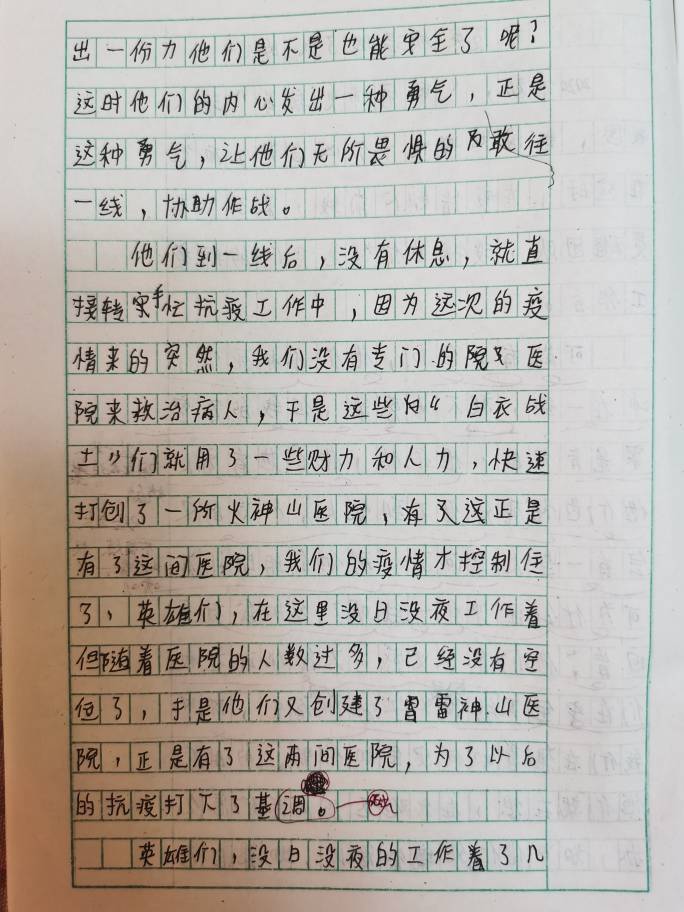 出一份力他们是不是也能安全了呢？
这时他们的内心发出一种勇气，正是
这种勇气，让他们无所畏惧的敢往
一线，协助作战。
他们到一线后，没有休息，就直
接转忙抗疫工作中，因为这次的疫
情来的突然，我们没有专门的医
院来救治病人，于是这些“白衣战
士”们就用了一些财力和人力，快速
打创了一所火神山医院，有这正是
有了这间医院，我们的疫情才控制住
了，英雄们，在这里没日没夜工作着
但随着医院的人数过多，已经没有空
位了，于是他们又创建了雷神山医
院，正是有了这两间医院，为了以后
的抗疫打下了基调。
英雄们，没日没夜的工作着了几